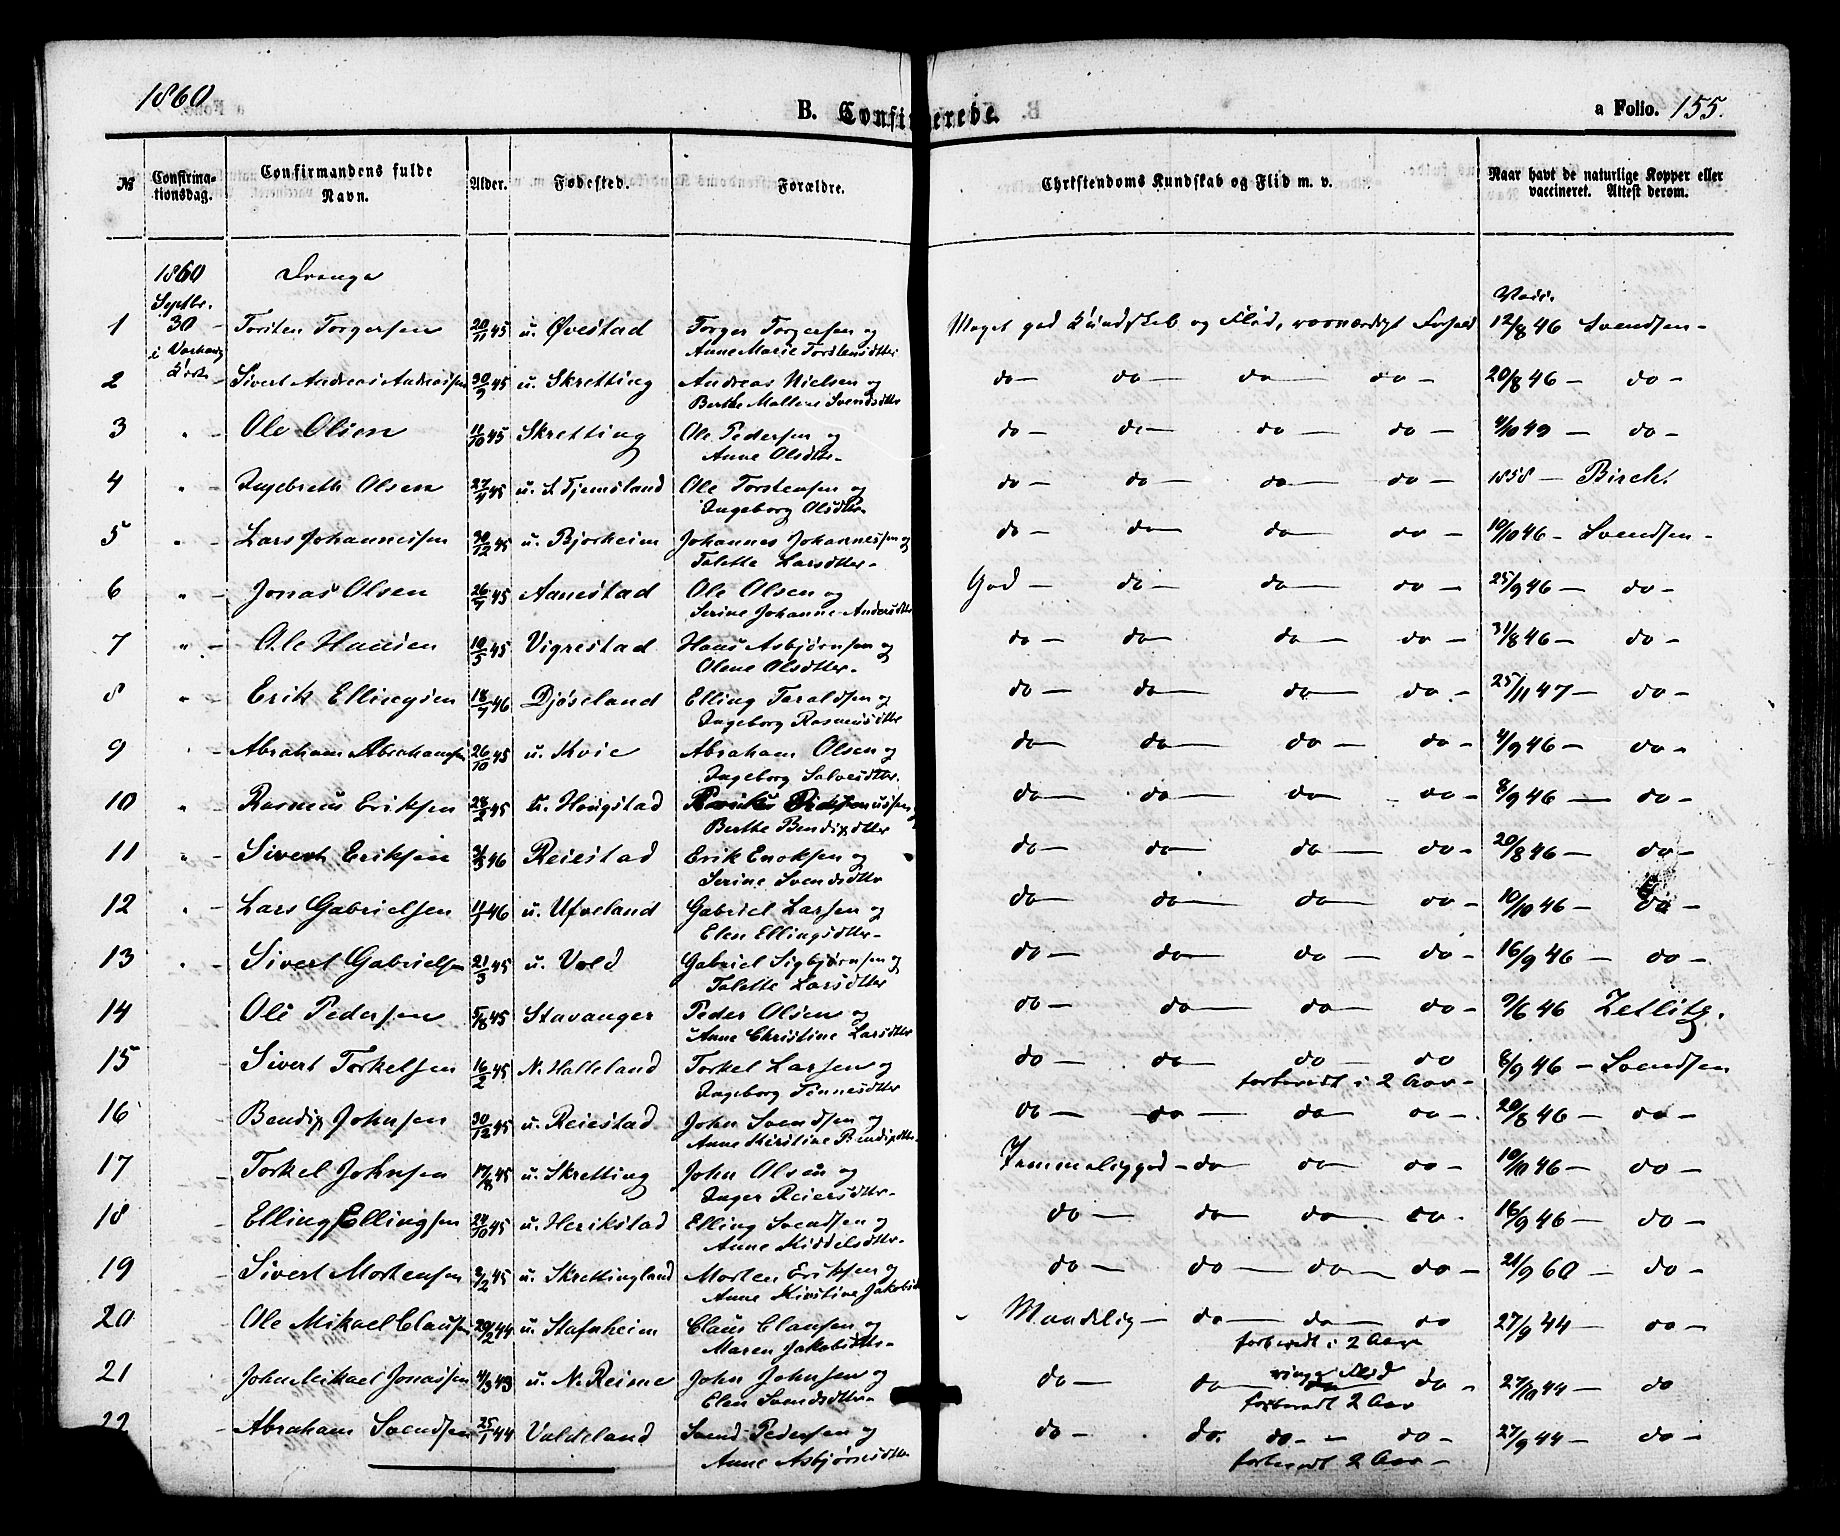 1860
B. Confirmerede.
a Folio. 155.
№ Confirmationsdag. Confirmandens fulde Navn. Alder. Fødested. Forældre. Christendoms Kundskab og Flid m. v. Naar havt de naturlige Kopper eller vaccineret. Attest derom.
1860 Drenge
Septbr. Vacc.
1 30 - Torsten Torgersen 20/11 45 u. Øvestad Torger Torgersen og Meget god Kundskab og Flid, 12/8 46 Svendsen -
i Kirke Anne Marie Torstensdtter
2 Sivert Andreas Andreassen 30/9 45 u. Skretting Andreas Nielsen og do - do - do - do - 20/8 46 - do -
Berthe Malene Svendsdtter
3 " - Ole Olsen 11/10 45 Skretting Ole Pedersen og do - do - do - do - 4/10 49 - do -
Anne Olsdtter -
4 " - Ingebreth Olsen 27/4 45 u. S. Tjemsland Ole Torstensen og do - do - do - do - 1858 - Birch.
Ingeborg Olsdtter
5 " - Lars Johannessen 30/12 45 u. Bjorheim Johannes Johannessen og do - do - do - do - 10/10 46 - Svendsen -
Talette Larsdtter -
6 " - Jonas Olsen 26/7 45 Aanestad Ole Olsen og God - do - do - do - 25/9 46 - do -
Serine Johanne Andersdtter
7 " - Ole Hansen 10/5 45 Vigrestad Hans Asbjørnsen og do - do - do - do - 31/8 46 - do -
Olene Olsdtter -
8 " - Erik Ellingsen 18/7 46 Djøseland Elling Taraldsen og do - do - do - do - 25/11 47 - do -
Ingeborg Rasmusdtter
9 " - Abraham Abrahamsen 26/10 45 u. Kvie Abraham Olsen og do - do - do - do - 4/9 46 - do -
Ingeborg Salvesdtter.
10 " - Rasmus Eriksen 28/2 45 u. Hougstad do - do - do - do - 8/9 46 - do -
Berthe Bendixdtter
11 " - Sivert Eriksen 31/3 46 Reiestad Erik Enoksen og do - do - do - do - 20/8 46 - do -
Serine Svendsdtter
12 " - Lars Gabrielsen 11/1 46 u. Ufveland Gabriel Larsen og do - do - do - do - 10/10 46 - do -
Elen Ellingsdtter -
13 " - Sivert Gabrielsen 21/3 45 u. Vold Gabriel Sigbjørnsen og do - do - do - do - 16/9 46 - do -
Talette Larsdtter
14 - Ole Pedersen 5/8 45 Stavanger Peder Olsen og do - do - do - do - 9/6 46 Zetlitz.
Anne Christine Larsdtter
15 - Sivert Torkelsen 16/2 45 N. Halleland Torkel Larsen og do - do - do - do 8/9 46 - Svendsen
Ingeborg Tønnesdtter forberedt i 2 Aar -
16 - Bendix Johnsen 30/12 45 u. Reiestad John Svendsen og do - do - do - do - 20/8 46 - do -
Anne Kirstine Bendixdtter -
17 - Torkel Johnsen 17/8 45 u. Skretting John Olsen og Temmelig god - do - do - do - 10/10 46 - do -
Inger Reiersdtter -
18 - Elling Ellingsen 24/10 45 u. Herikstad Elling Svendsen og do - do - do - do - 16/9 46 - do -
Anne Kiddelsdtter -
19 - Sivert Mortensen 2/2 45 u. Skrettingland Morten Eriksen og do - do - do - do - 21/9 60 - do -
Anne Kirstine Jakobsd
20 - Ole Mikael Clausen 29/12 44 u. Stafnheim Claus Clausen og Maadelig - do - do - do 27/9 44 - do -
Maren Jakobsdtter - forberedt i 2 Aar
ringe Flid
21 - John Mikael Jonassen 4/3 43 u. N. Reime John Johnsen og do - do - do - do - 27/11 44 - do
Elen Svendsdtter - forberedt 2 Aar
22 - Abraham Svendsen 25/1 44 Valdeland Svend Pedersen og do - do. do - do - 27/9 44 - do -
Anne Asbjørnsdtter forberedt 2 Aar -